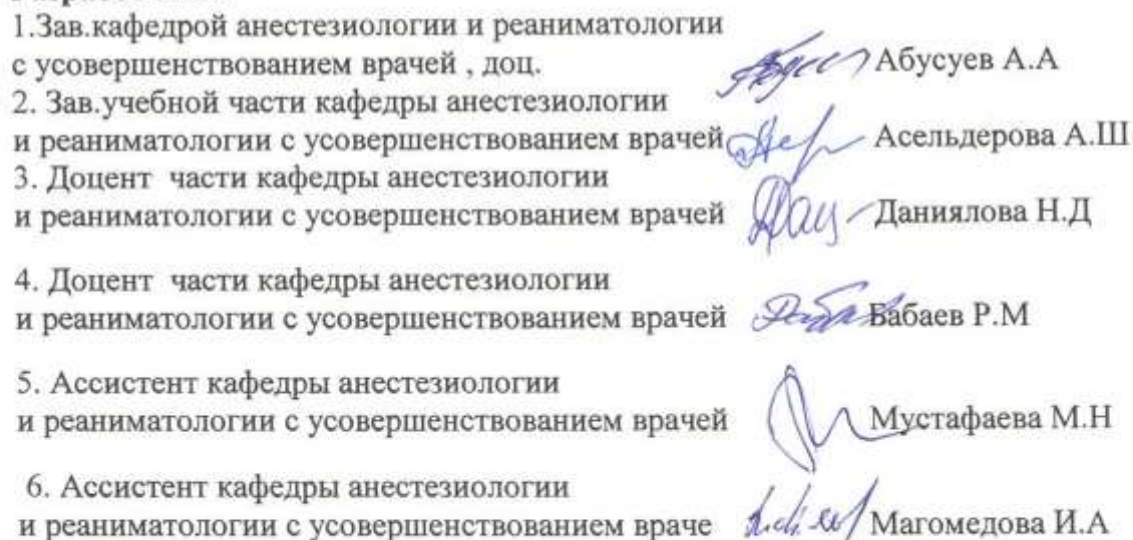 1.Зав.кафедрой анестезиологии и реаниматологии
с усовершенствованием врачей , доц. Абусуев А.А
2. Зав.учебной части кафедры анестезиологии
и реаниматологии с усовершенствованием врачей Асельдерова А.Ш
3. Доцент части кафедры анестезиологии
и реаниматологии с усовершенствованием врачей Даниялова Н.Д
4. Доцент части кафедры анестезиологии
и реаниматологии с усовершенствованием врачей Бабаев Р.М
5. Ассистент кафедры анестезиологии
и реаниматологии с усовершенствованием врачей Мустафаева М.Н
6. Ассистент кафедры анестезиологии
и реаниматологии с усовершенствованием враче Магомедова И.А